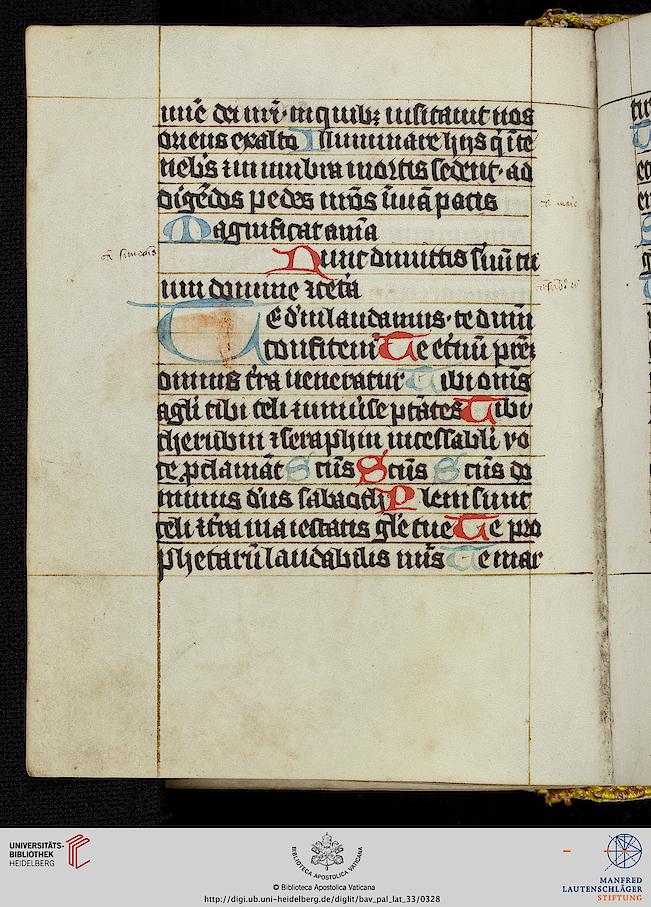 mie dei nri in quibz uisitauit nos
oriens ex alto Illuminare hijs q i te
nebs z in umbra mortis sedent ad
digedos pedes nros i uia pacis
Magnificat aia
Nunc dimittis suu tu
um domine zceta
TE deu laudamus te dnm
confitemr Te etnu prez
omnis tra ueneratur Tibi oms
agli tibi celi z uniuse ptates Tibi
cherubin z seraphin incessabili vo
ce pclamat Scus Scus Scus do
minus dus sabaoth Pleni sunt
celi z tra maiestatis gle tue Te pro
phetaru laudabilis nus Te mar
UNIVERSITÄTS-
BIBLIOTHEK
HEIDELBERG
BIBLIOTECA APOSTOLICA VATICANA
© Biblioteca Apostolica Vaticana
http://digi.ub.uni-heidelberg.de/diglit/bav_pal_lat_33/0328
MANFRED
LAUTENSCHLÄGER
STIFTUNG